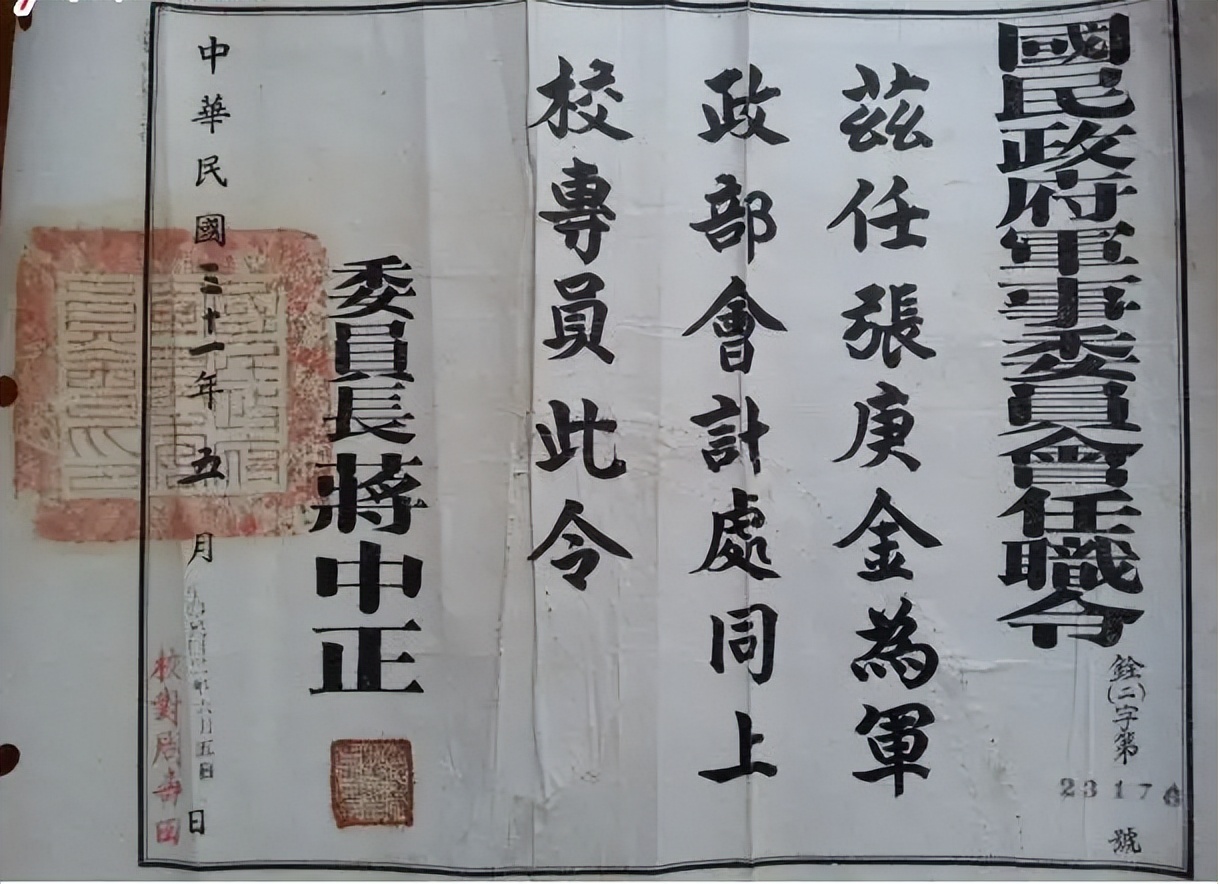 國民政府軍事委員會任職令
銓(二)字第
23176
號
茲任張庚金為軍
政部會計處同上
校專員此令
委員長蔣中正
中華民國三十一年五月
年六月五日
日
校對周壽田